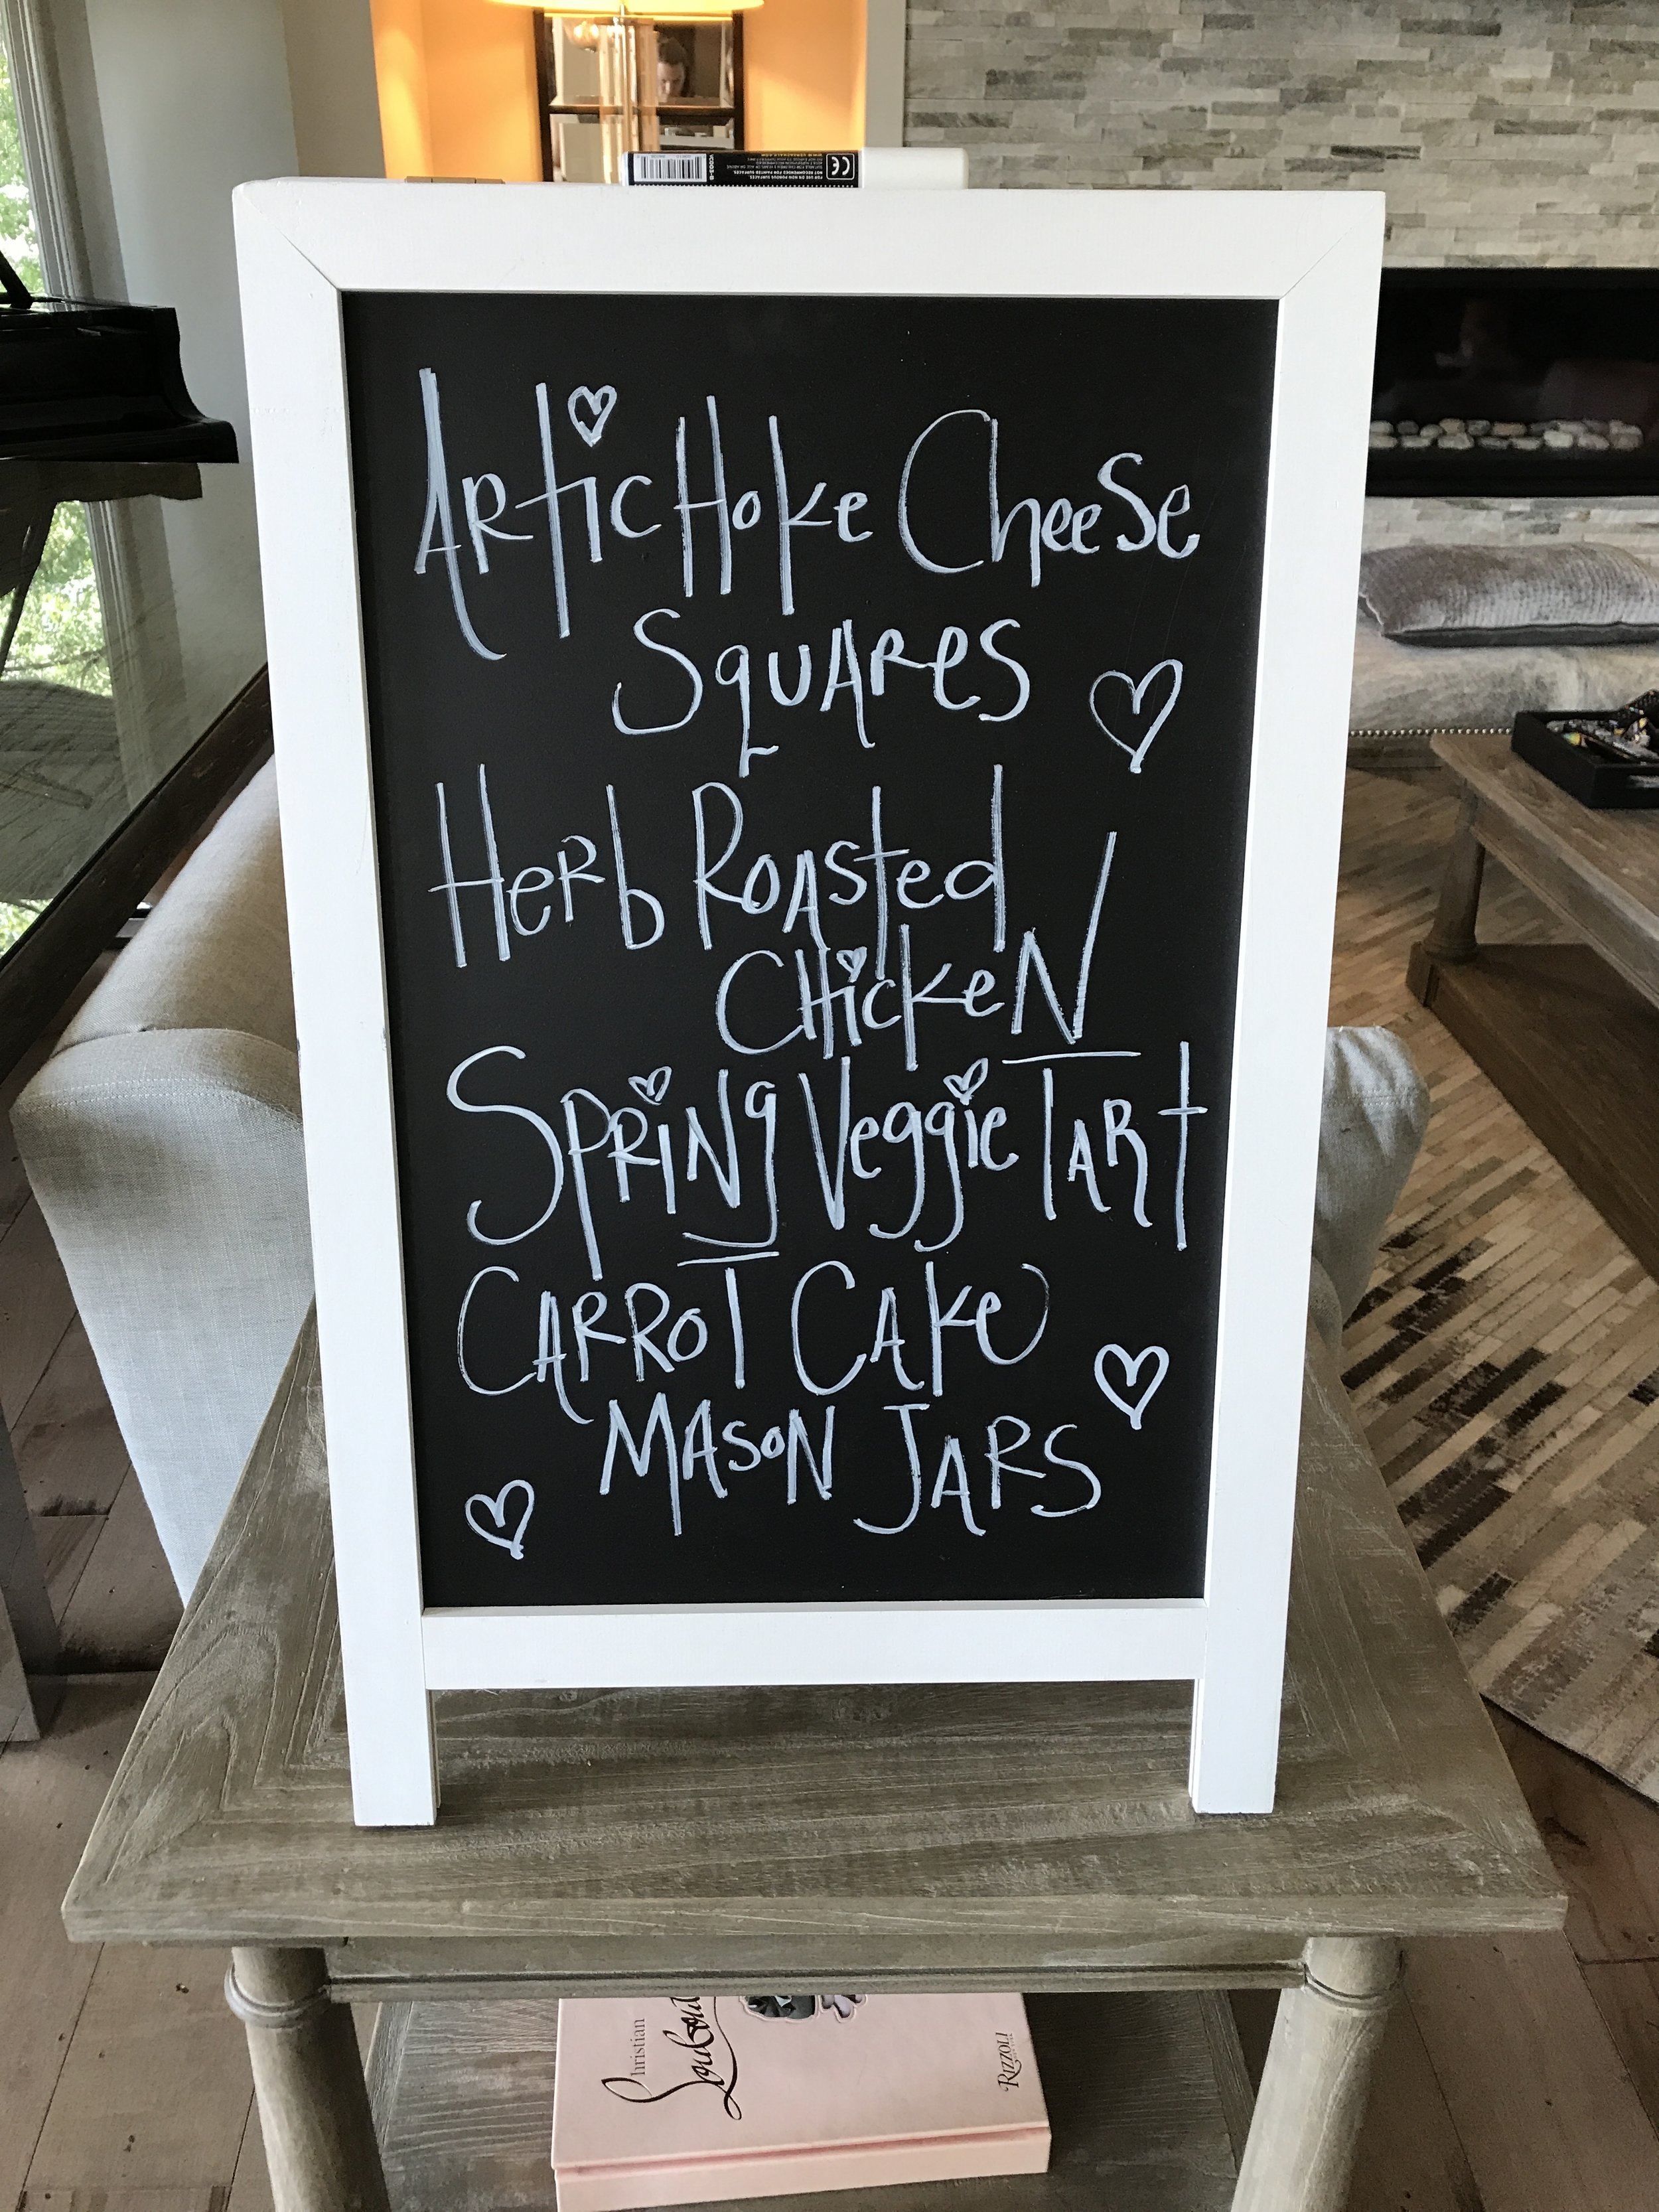 ArticHoke CheeSe
SquAres
Herb RoAsted
CHickeN
SpriNg Veggie TArt
CArroT CAke
MAsoN JArS
Christian
RIZZOLI